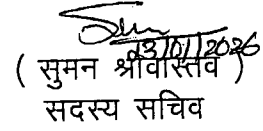 13/01/2026
( सुमन श्रीवास्तव )
सदस्य सचिव